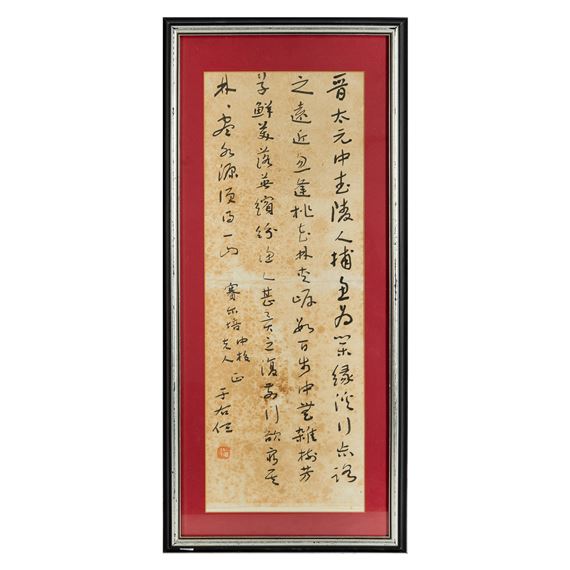 晉太元中武陵人捕魚為業緣溪行忘路
之遠近忽逢桃花林夾岸數百步中無雜樹芳
草鮮美落英繽紛漁人甚異之復前行欲窮其
林、盡水源便得一山
賽尔中校
夫人 正
于右任